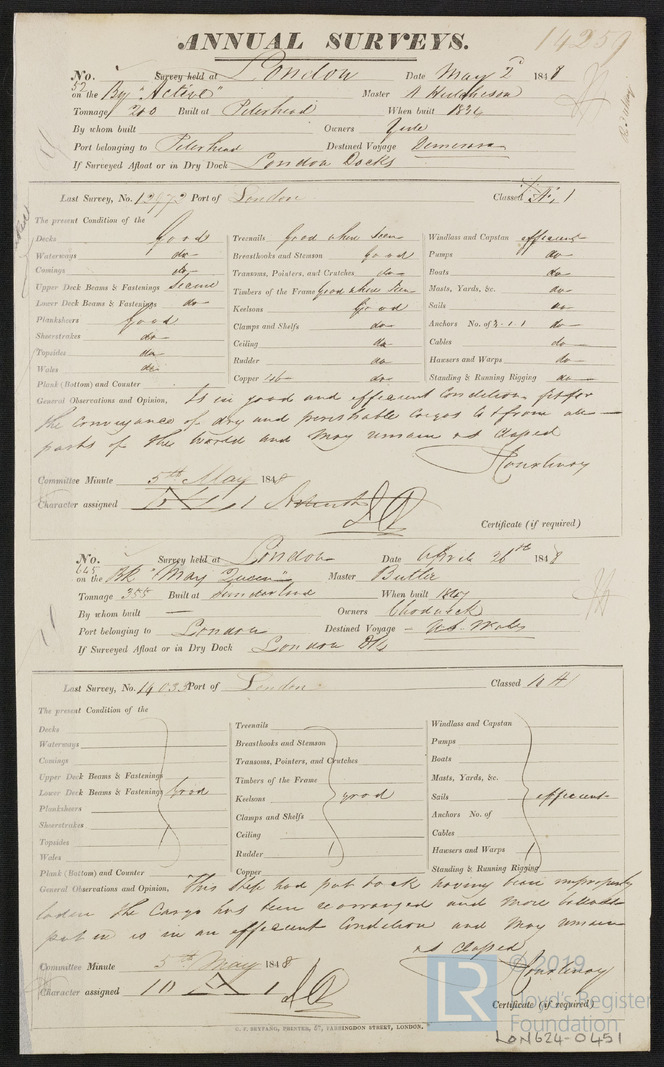 14259
ANNUAL SURVEYS.
No. 52 Survey held at London Date May 2d 1848
on the Bg "Active" Master A Hutchison
Tonnage 200 Built at Peterhead When built 1836
By whom built Owners Yule
Port belonging to Peterhead Destined Voyage
If Surveyed Afloat or in Dry Dock London Docks
Last Survey, No. 13973 Port of London Classed
The present Condition of the
Decks good Treenails good where seen Windlass and Capstan efficient
Waterways do Breasthooks and Stemson good Pumps do
Comings do Transoms, Pointers, and Crutches do Boats do
Upper Deck Beams & Fastenings Secure Timbers of the Frame good where seen Masts, Yards, &c. do
Lower Deck Beams & Fastenings do Keelsons good Sails do
Planksheers good Clamps and Shelfs do Anchors No. of 3.1.1 do
Sheerstrakes do Ceiling do Cables do
Topsides do Rudder do Hawsers and Warps do
Wales do Copper 46 do Standing & Running Rigging do
Plank (Bottom) and Counter
General Observations and Opinion, Is in good and efficient condition fit for
the conveyance of dry and perishable cargos to & from all
parts of the World and may remain as classed
Courtenay
Committee Minute 5th May 1848
Character assigned
Certificate (if required)
No. 665 Survey held at London Date April 26th 1848
on the Bk "May Queen" Master Butler
Tonnage 355 Built at Sunderland When built
By whom built — Owners Chadwick
Port belonging to London Destined Voyage N.S. Wales
If Surveyed Afloat or in Dry Dock London Dk
Last Survey, No. 14033 Port of London Classed 10 A 1
The present Condition of the
Decks Treenails Windlass and Capstan
Waterways Breasthooks and Stemson Pumps
Comings Transoms, Pointers, and Crutches Boats
Upper Deck Beams & Fastenings Timbers of the Frame Masts, Yards, &c.
Lower Deck Beams & Fastenings Good Keelsons good Sails efficient
Planksheers Clamps and Shelfs Anchors No. of
Sheerstrakes Ceiling Cables
Topsides Rudder Hawsers and Warps
Wales Copper Standing & Running Rigging
Plank (Bottom) and Counter
General Observations and Opinion, This Ship had put back having been improperly
laden the Cargo has been rearranged and more ballast
put in is in an efficient condition and may remain
as classed
Courtenay
Committee Minute 5th May 1848
Character assigned 10 A 1
Certificate (if required)
C. F. SEYFANG, PRINTER, 57, FARRINGDON STREET, LONDON.
LR © 2019
Lloyd's Register
Foundation
LON624-0451